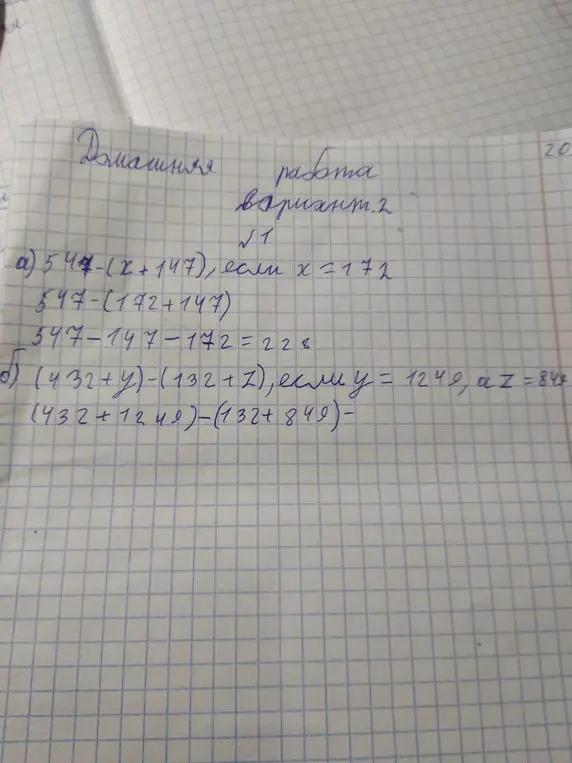 20
Домашняя работа
вариант.2
№1
а) 547-(x+147), если x=172
547-(172+147)
547-147-172=228
б) (432+y)-(132+z), если y=1249, а z=849
(432+1249)-(132+849)-